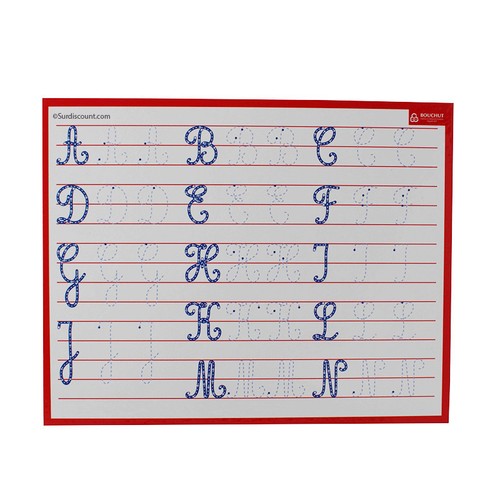 ©Surdiscount.com
BOUCHUT
A A A B B B C C C
D D D E E E F F F
G G G H H H I I I
J J J K K K L L L
M M M N N N